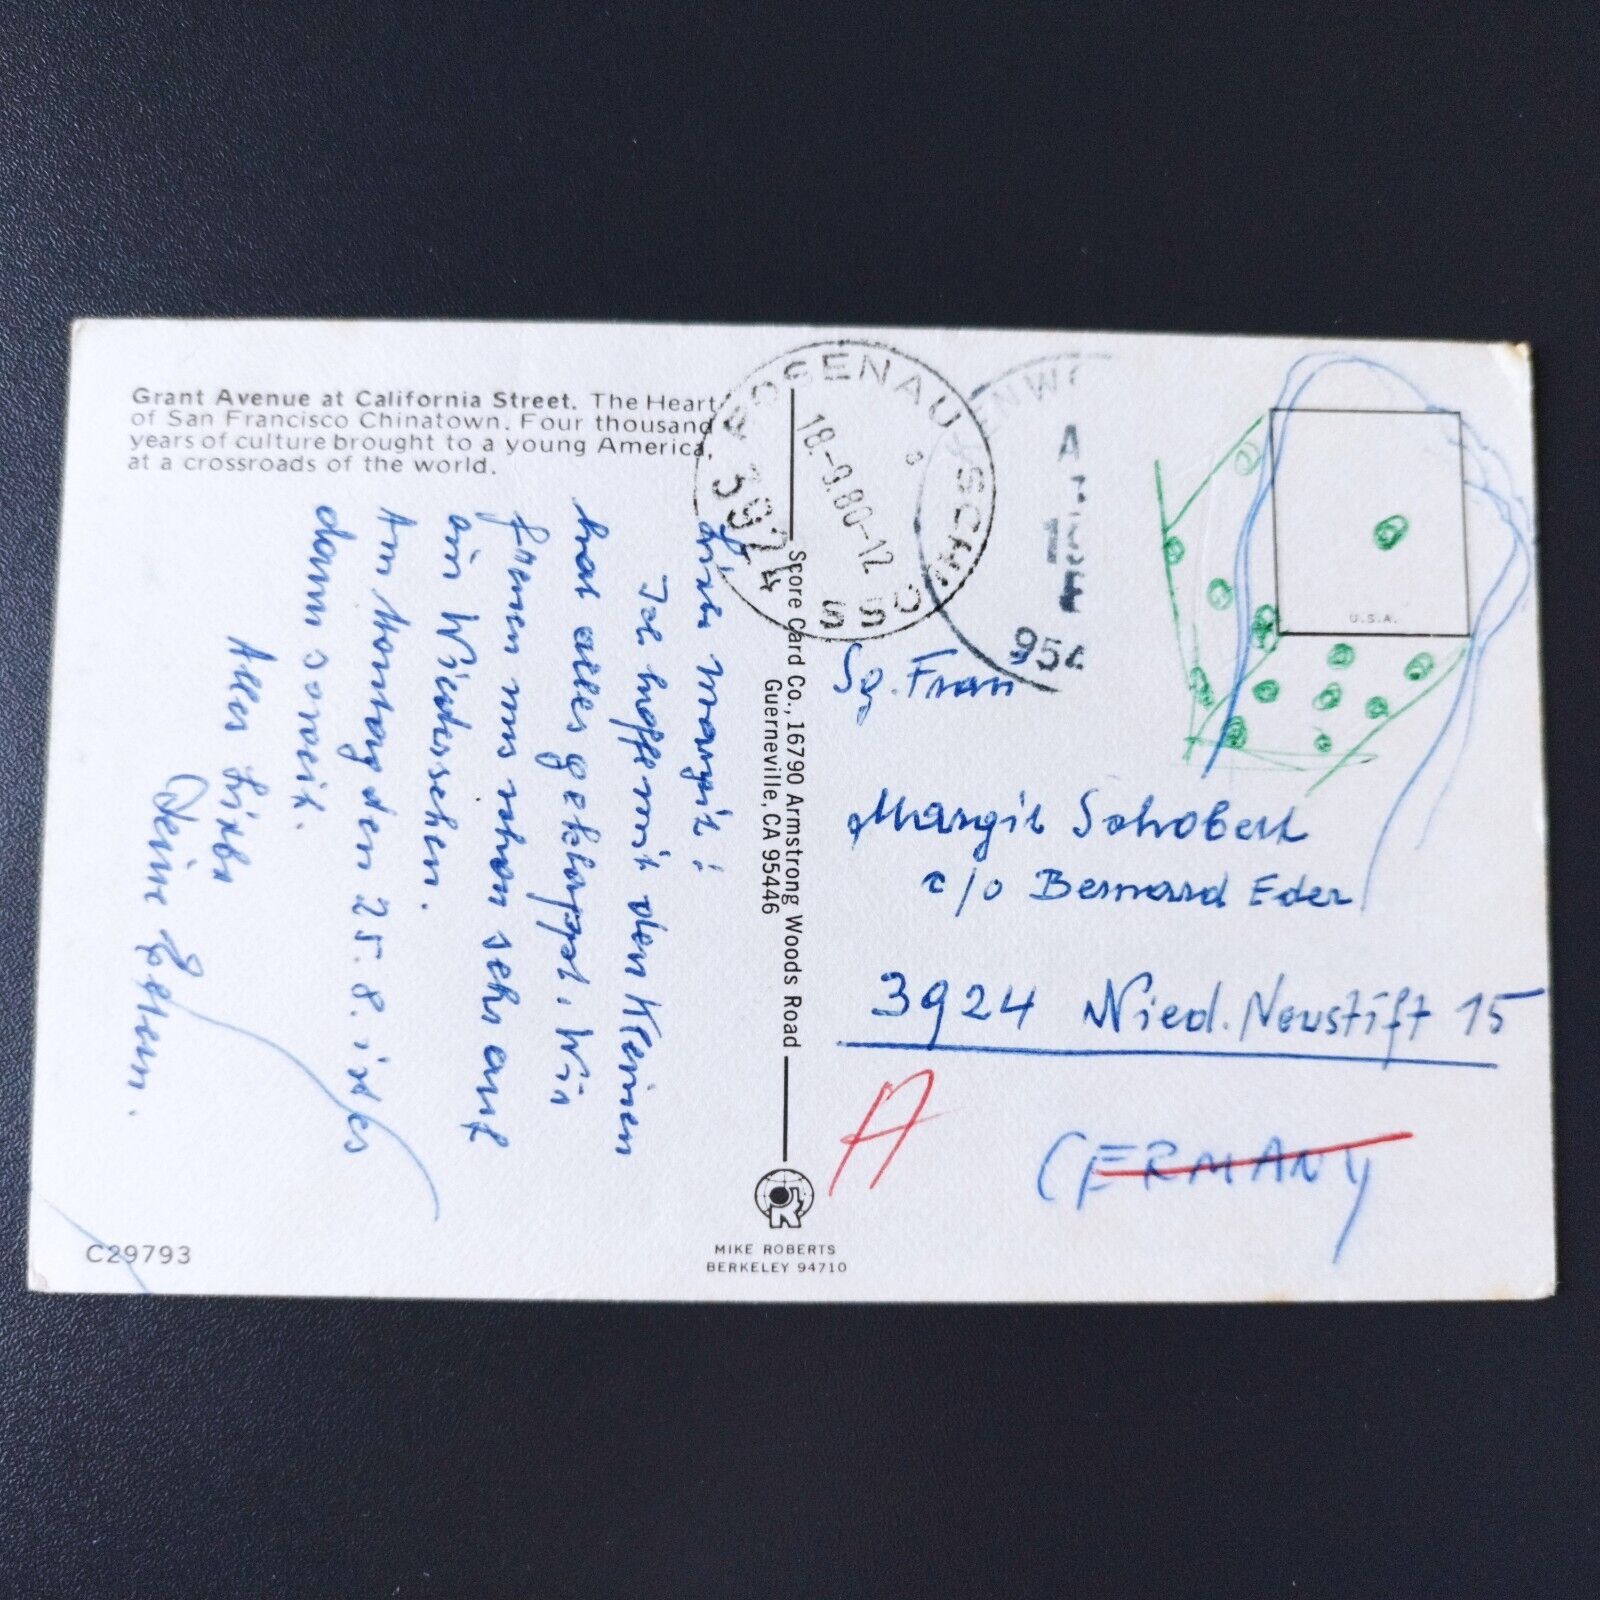 Grant Avenue at California Street. The Heart
of San Francisco Chinatown. Four thousand
years of culture brought to a young America,
at a crossroads of the world.
Liebe Margit!
Ich hoffe mit den Kleinen
hat alles geklappt. Wir
freuen uns schon sehr auf
ein Wiedersehen.
Am Montag den 25.8. ist es
dann soweit.
Alles Liebe
Deine Eltern.
C29793
Score Card Co., 16790 Armstrong Woods Road
Guerneville, CA 95446
MIKE ROBERTS
BERKELEY 94710
ROSENAU SCHLOSS
3924
18.-9.80-12
ENW
A
954
U.S.A.
Sg. Frau
Margit Schobert
c/o Bernard Eder
3924 Nied. Neustift 15
A
GERMANY